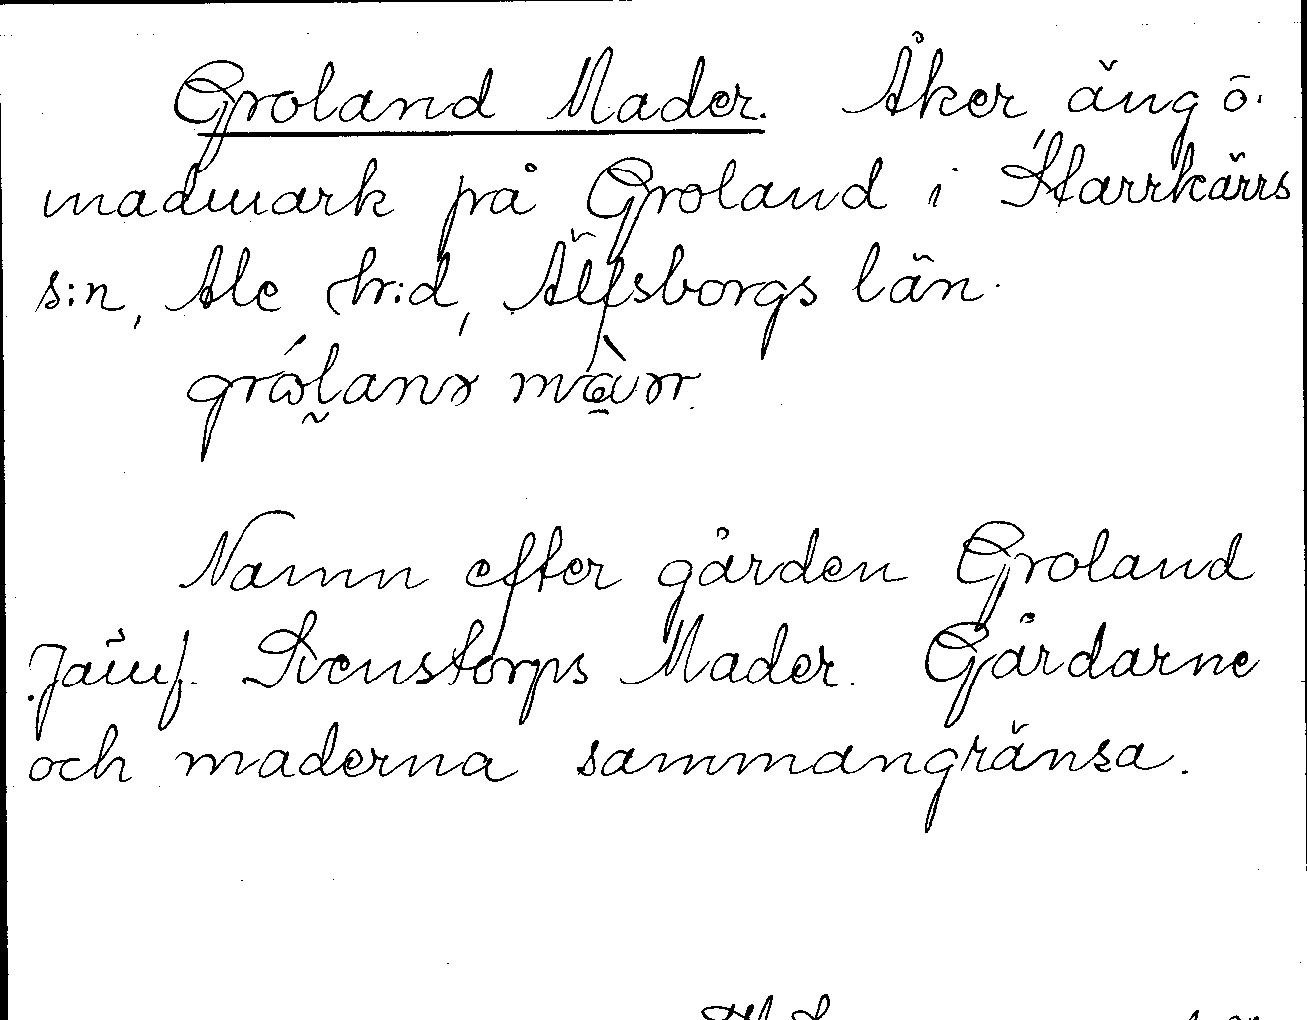 Groland Mader. Åker äng o.
madmark på Groland i Starrkärrs
s:n, Ale hr:d, Älfsborgs län.
Namn efter gården Groland
Jämf. Svenstorps Mader. Gårdarne
och maderna sammangränsa.